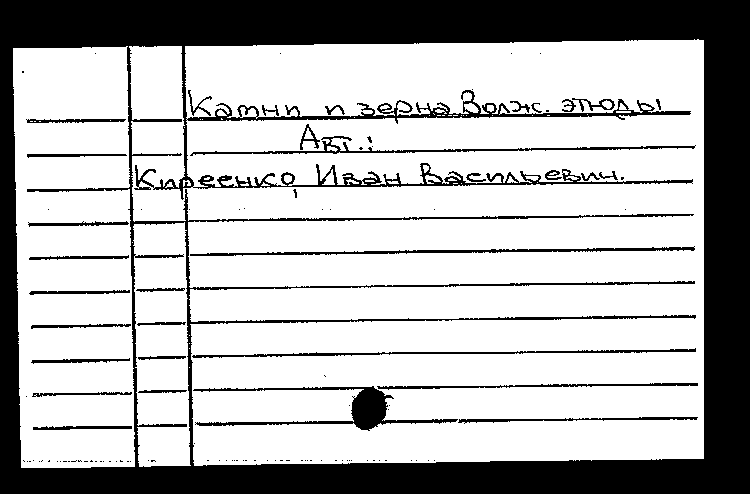 Камни и зерна Волж. этюды
Авт.:
Киреенко, Иван Васильевич.